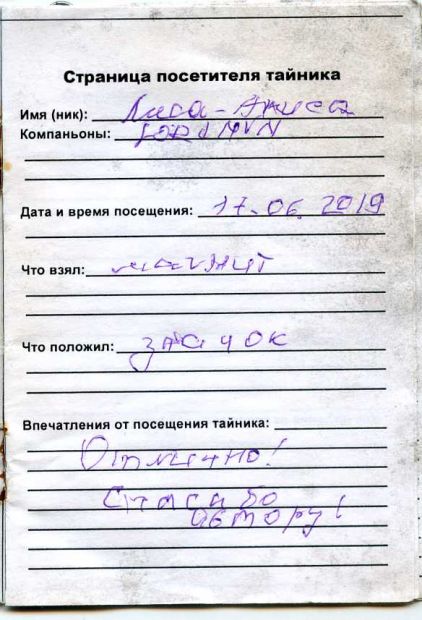 Страница посетителя тайника
Имя (ник): Лиса-Алиса
Компаньоны:
Дата и время посещения: 17.06.2019
Что взял: магнит
Что положил: значок
Впечатления от посещения тайника:
Отлично!
Спасибо
автору!